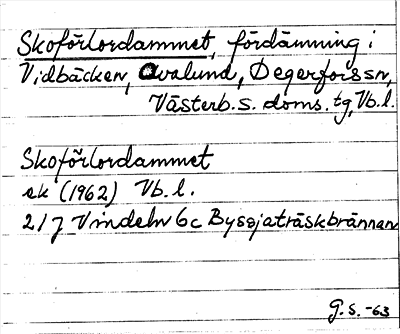 Skoförlordammet, fördämning i
Vidbäcken, Avalund, Degerfors sn,
Västerb. s. doms. tg, Vb. l.
Skoförlordammet
ek (1962) Vb. l.
21 J Vindeln 6c Byssjaträskbrännan
G. S. -63